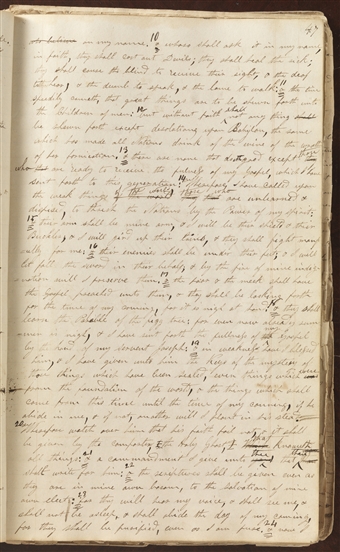 47
to believe on my name. 10 & whoso shall ask it in my name,
in faith, they shall cast out Devils; they shall heal the sick;
they shall cause the blind to receive their sight, & the deaf
to hear, & the dumb to speak, & the lame to walk: 11 & the time
speedily cometh, that great things are to be shown forth unto
the children of men: 12 but without faith shall not any thing
be shown forth except desolations upon Babylon, the same
which has made all nations drink of the wine of the wrath
of her fornication. 13 & there are none that doeth good except those
who are ready to receive the fulness of my Gospel, which I have
sent forth to this generation: 14 Wherefore, I have called upon
the weak things of the world, those who are unlearned &
despised, to thrash the Nations by the Power of my spirit;
15 & their arm shall be mine arm, & I will be their shield & their
buckler, & I will gird up their loins, & they shall fight man
fully for me: 16 & their enemies shall be under their feet; & I will
let fall the sword in their behalf; & by the fire of mine indig
nation will I preserve them; 17 & the poor & the meek shall have
the Gospel preached unto them, & they shall be looking forth
for the time of my coming, for it is nigh at hand: 18 & they shall
learn the Parable of the fig tree; for even now already sum
mer is nigh, & I have sent forth the fulness of my Gospel
by the hand of my servant Joseph: 19 & in weakness have I blessed
him, & I have given unto him the keys of the mystery of
those things which have been sealed, even things which were
from the foundation of the world, & the things which shall
come from this time until the time of my coming, if he
abide in me, & if not, another will I plant in his stead.
20 Wherefore watch over him that his faith fail not, & it shall
be given by the comforter, the Holy Ghost, that knoweth
all things: 21 & a commandment I give unto thee, that thou
shalt write for him: 22 & the scriptures shall be given even as
they are in mine own bosom, to the salvation of mine
own elect: 23 for they will hear my voice, & shall see me, &
shall not be asleep, & shall abide the day of my coming,
for they shall be purified, even as I am pure. 24 & now I